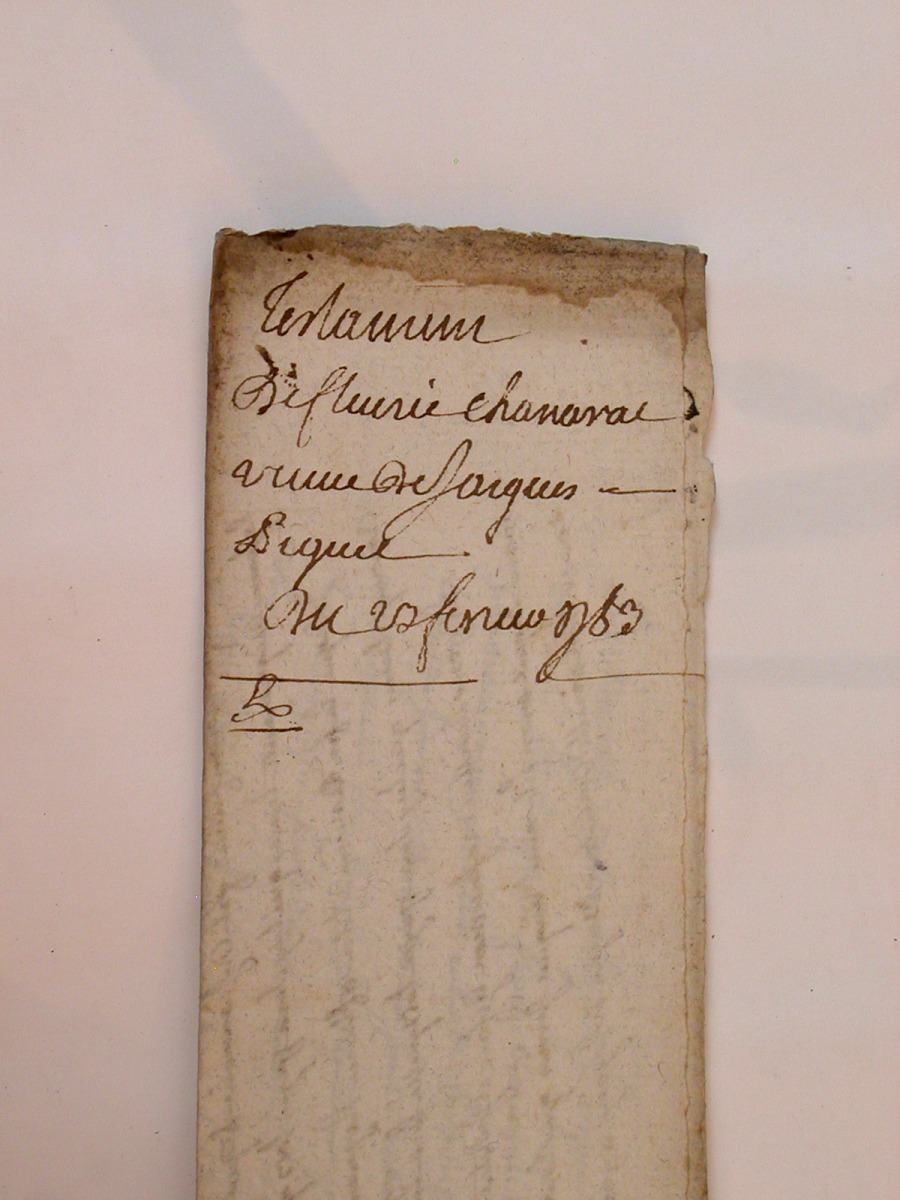 Testament
De fleurie chanavat
veuue De Jacques —
Piquet
Du 23 fevrier 1783